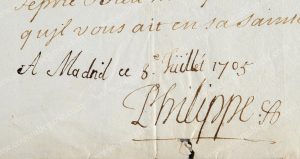 qu'il vous ait en sa sainte
A Madrid ce 3.e Juillet 1705
Philippe